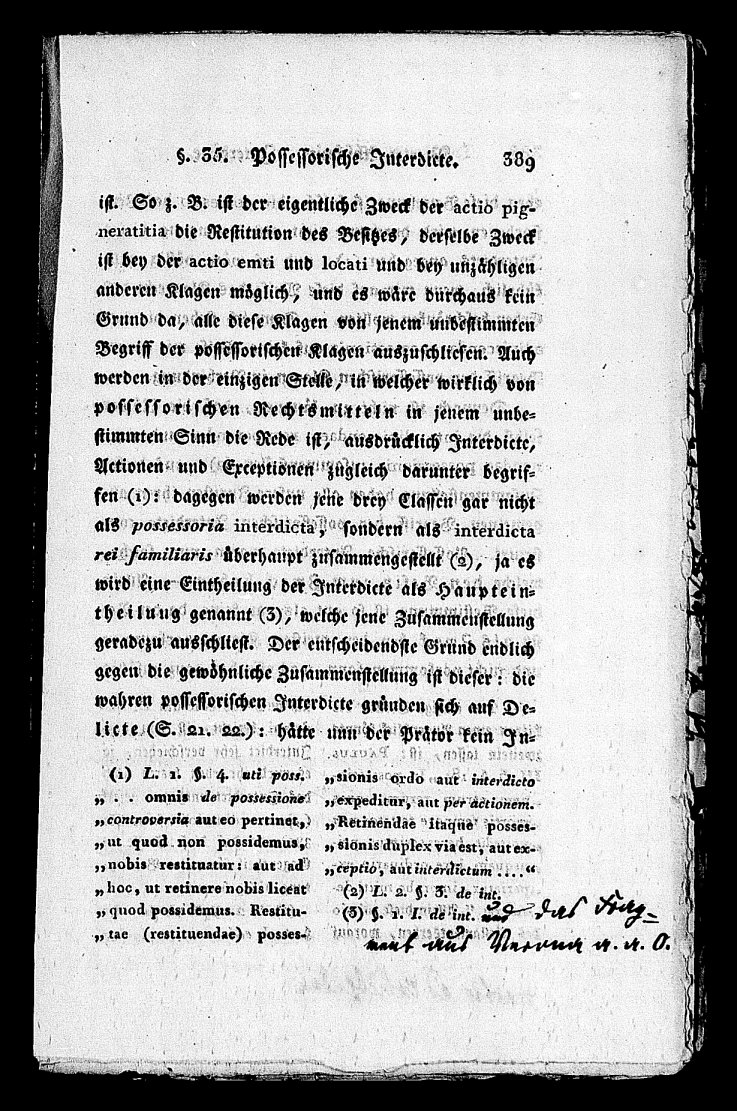 §. 35. Possessorische Interdicte. 389
ist. So z. B. ist der eigentliche Zweck der actio pig-
neratitia die Restitution des Besitzes, derselbe Zweck
ist bey der actio emti und locati und bey unzähligen
anderen Klagen möglich, und es wäre durchaus kein
Grund da, alle diese Klagen von jenem unbestimmten
Begriff der possessorischen Klagen auszuschliesen. Auch
werden in der einzigen Stelle, in welcher wirklich von
possessorischen Rechtsmitteln in jenem unbe-
stimmten Sinn die Rede ist, ausdrücklich Interdicte,
Actionen und Exceptionen zugleich darunter begrif-
fen (1): dagegen werden jene drey Classen gar nicht
als possessoria interdicta, sondern als interdicta
rei familiaris überhaupt zusammengestellt (2), ja es
wird eine Eintheilung der Interdicte als Hauptein-
theilung genannt (3), welche jene Zusammenstellung
geradezu ausschliest. Der entscheidendste Grund endlich
gegen die gewöhnliche Zusammenstellung ist dieser: die
wahren possessorischen Interdicte gründen sich auf De-
licte (S. 21. 22.): hätte nun der Prätor kein In-
(1) L. 1. §. 4. uti poss.
„ . . omnis de possessione
„controversia aut eo pertinet,
„ut quod non possidemus,
„nobis restituatur: aut ad
„hoc, ut retinere nobis liceat
„quod possidemus. Restitu-
„tae (restituendae) posses-
„sionis ordo aut interdicto
„expeditur, aut per actionem.
„Retinendae itaque posses-
„sionis duplex via est, aut ex-
„ceptio, aut interdictum ....“
(2) L. 2. §. 3. de int.
(3) §. 1. I. de int. und das Frag=
ment aus Verona a. a. O.